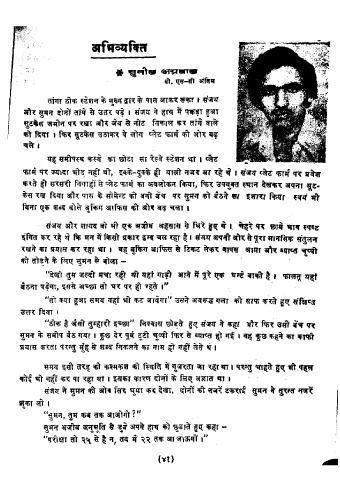 अभिव्यक्ति
सुनील अग्रवाल
बी. एस-सी अंतिम
तांगा ठीक स्टेशन के मुख्य द्वार के पास आकर रूका । संजय
और सुमन दोनों तांगे से उतर पड़े । संजय ने हाथ में पकड़ा हुआ
सूटकेस जमीन पर रखा और जेब से नोट निकाल कर तांगे वाले
को दिया । फिर सूटकेस उठाकर वे लोग प्लेट फार्म की ओर बढ़
चले ।
यह समीपस्थ कस्बे का छोटा सा रेलवे स्टेशन था । प्लेट
फार्म पर ज्यादा भीड़ नहीं थी, इक्के-दुक्के ही यात्री नजर आ रहे थे । संजय प्लेट फार्म पर प्रवेश
करते ही सरसरी निगाहों से प्लेट फार्म का अवलोकन किया, फिर उपयुक्त स्थान देखकर अपना सूट-
केस रख दिया और पास के सीमेन्ट की बनी बेंच पर सुमन को बैठने का इशारा किया स्वयं भी
बिना एक शब्द बोले बुकिंग आफिस की ओर बढ़ चला ।
संजय और शायद वो भी एक अजीब अहसास से घिरे हुए थे । चेहरे पर छाये भाव स्पष्ट
इंगित कर रहे थे कि मन में किसी प्रकार द्वन्द चल रहा है । संजय अपनी ओर से पूरा मानसिक संतुलन
रखने का प्रयास कर रहा था । वह बुकिंग आफिस से टिकट लेकर वापस आया और व्याप्त चुप्पी
को तोड़ने के लिए सुमन से बोला -
"देखो तुम जल्दी मचा रही थी यहां गाड़ी आने में पूरे एक घन्टे बाकी है । फालतू यहां
बैठना पड़ेगा, इससे अच्छा तो घर पर ही रहते ।"
"तो क्या हुआ समय यहां भी कट जायेगा" उसने अवरूद्ध गला को साफ करते हुए संक्षिप्त
उत्तर दिया ।
"ठीक है जैसी तुम्हारी इच्छा" निश्वास छोड़ते हुए संजय ने कहा और फिर उसी बेंच पर
सुमन के समीप बैठ गया । कुछ देर पूर्व टूटी चुप्पी फिर से स्थापित हो गई । वह कुछ कहने का काफी
प्रयास करता परन्तु मुँह से शब्द निकलने का नाम ही नहीं लेते थे ।
समय इसी तरह की कश्मकश की स्थिति में गुजरता जा रहा था । परन्तु चाहते हुए भी पहल
कोई भी नहीं कर पा रहा था । इसका कारण दोनों के लिए अज्ञात था ।
संजय ने सुमन की ओर सिर घुमा कर देखा, दोनों की नजरें टकराई सुमन ने तुरन्त नजरें
झुका ली ।
"सुमन, तुम कब तक आओगी ?"
सुमन अजीब अनुभूति से डूबे अपने हाथ को छुड़ाते हुए कहा -
"परीक्षा तो २५ से है न, तब में २२ तक आ जाऊंगी ।"
(४१)